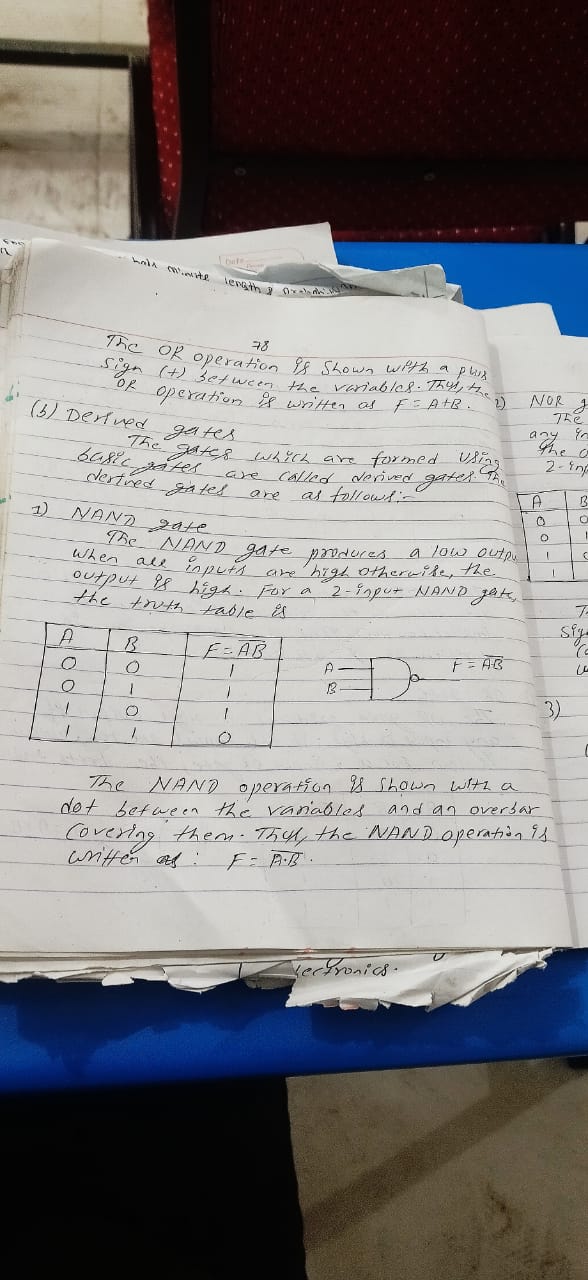 half minute length &
78
The OR operation is shown with a plus
sign (+) between the variables. Thus, the
OR operation is written as F = A+B.
(b) Derived gates
The gates which are formed using
basic gates are called derived gates. The
derived gates are as follows:-
1) NAND gate
The NAND gate produces a low outpu
when all inputs are high otherwise, the
output is high. For a 2-input NAND gate,
the truth table is
A B F = A̅B̅
0 0 1
0 1 1
1 0 1
1 1 0
A
B
F = A̅B̅
The NAND operation is shown with a
dot between the variables and an overbar
covering them. Thus, the NAND operation is
written as : F = A̅·̅B̅.
lectronics.
2) NOR g
The
any in
the o
2-inp
A B
0 0
0 1
1
1
3)